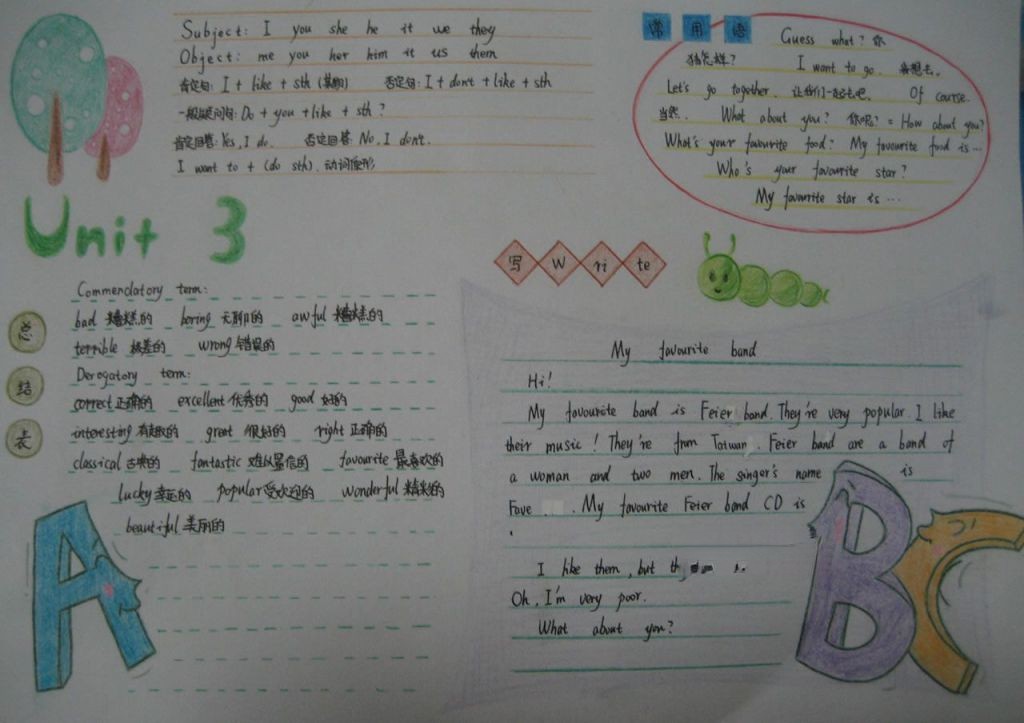 Subject: I you she he it we they
Object: me you her him it us them
肯定句: I + like + sth (某物) 否定句: I + don't + like + sth
一般疑问句: Do + you + like + sth ?
肯定回答: Yes, I do. 否定回答: No, I don't.
I want to + (do sth). 动词原形
常用语
Guess what? 你
猜怎样? I want to go. 我想去.
Let's go together. 让我们一起去吧. Of course.
当然. What about you? 你呢? = How about you?
What's your favourite food? My favourite food is ...
Who's your favourite star?
My favourite star is ...
Unit 3
总结表
Commendatory term:
bad 糟糕的 boring 无聊的 awful 糟糕的
terrible 极差的 wrong 错误的
Derogatory term:
correct 正确的 excellent 优秀的 good 好的
interesting 有趣的 great 很好的 right 正确的
classical 古典的 fantastic 难以置信的 favourite 最喜欢的
lucky 幸运的 popular 受欢迎的 wonderful 精彩的
beautiful 美丽的
写 W ri te
My favourite band
Hi!
My favourite band is Feier band. They're very popular. I like
their music! They're from Taiwan. Feier band are a band of
a woman and two men. The singer's name is
Faye . My favourite Feier band CD is
.
I like them, but th
Oh, I'm very poor.
What about you?
A
B
C